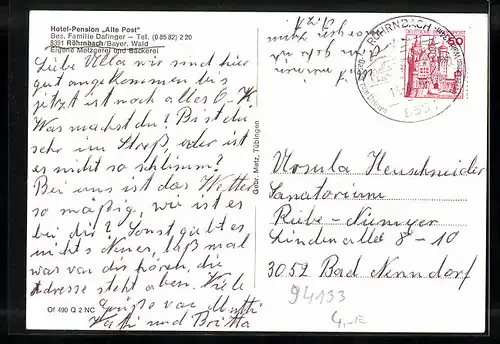 Hotel-Pension „Alte Post"
Bes. Familie Dafinger – Tel. (0 85 82) 2 20
8391 Röhrnbach/Bayer. Wald
Eigene Metzgerei und Bäckerei
Liebe Ulla wir sind hier
gut angekommen bis
jetzt ist noch alles O.K.
Was machst du? Bist du
sehr im Streß, oder ist
es nicht so schlimm?
Bei uns ist das Wetter
so mäßig, wie ist es
bei dir? Sonst gibt es
nichts Neues, laß mal
was von dir hören, die
Adresse steht oben. Viele
Grüße von Mutti
Vati und Britta
Of 490 Q 2 NC
Gebr. Metz, Tübingen
RÖHRNBACH
60
Ursula Heuschneider
Sanatorium
Rübe-Numyer
Lindenallee 8-10
3052 Bad Nenndorf
94133
4,-E